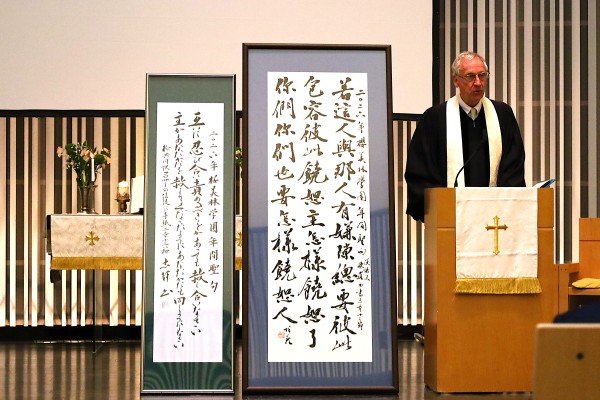 二〇二六年 桜美林学園年間聖句
互に忍び合い責めるべきことがあっても赦し合いなさい
主があなたがたを赦してくださったようにあなたがたも同じようにしなさい
二〇二六年桜美林学園年間聖句
若這人與那人有嫌隙總要彼此
包容彼此饒恕主怎樣饒恕了
你們你們也要怎樣饒恕人